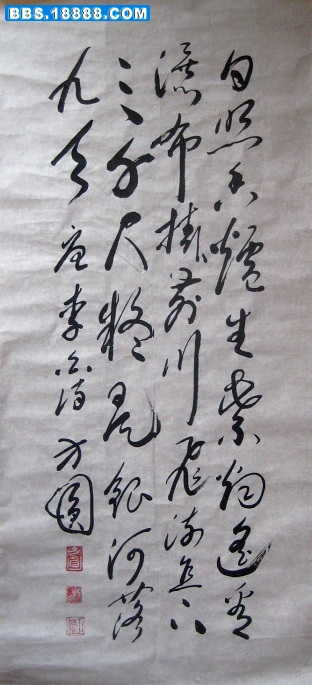 BBS.18888.COM
日照香爐生紫烟遙看
瀑布掛前川飛流直下
三千尺疑是銀河落
九天 唐李白詩 方圓